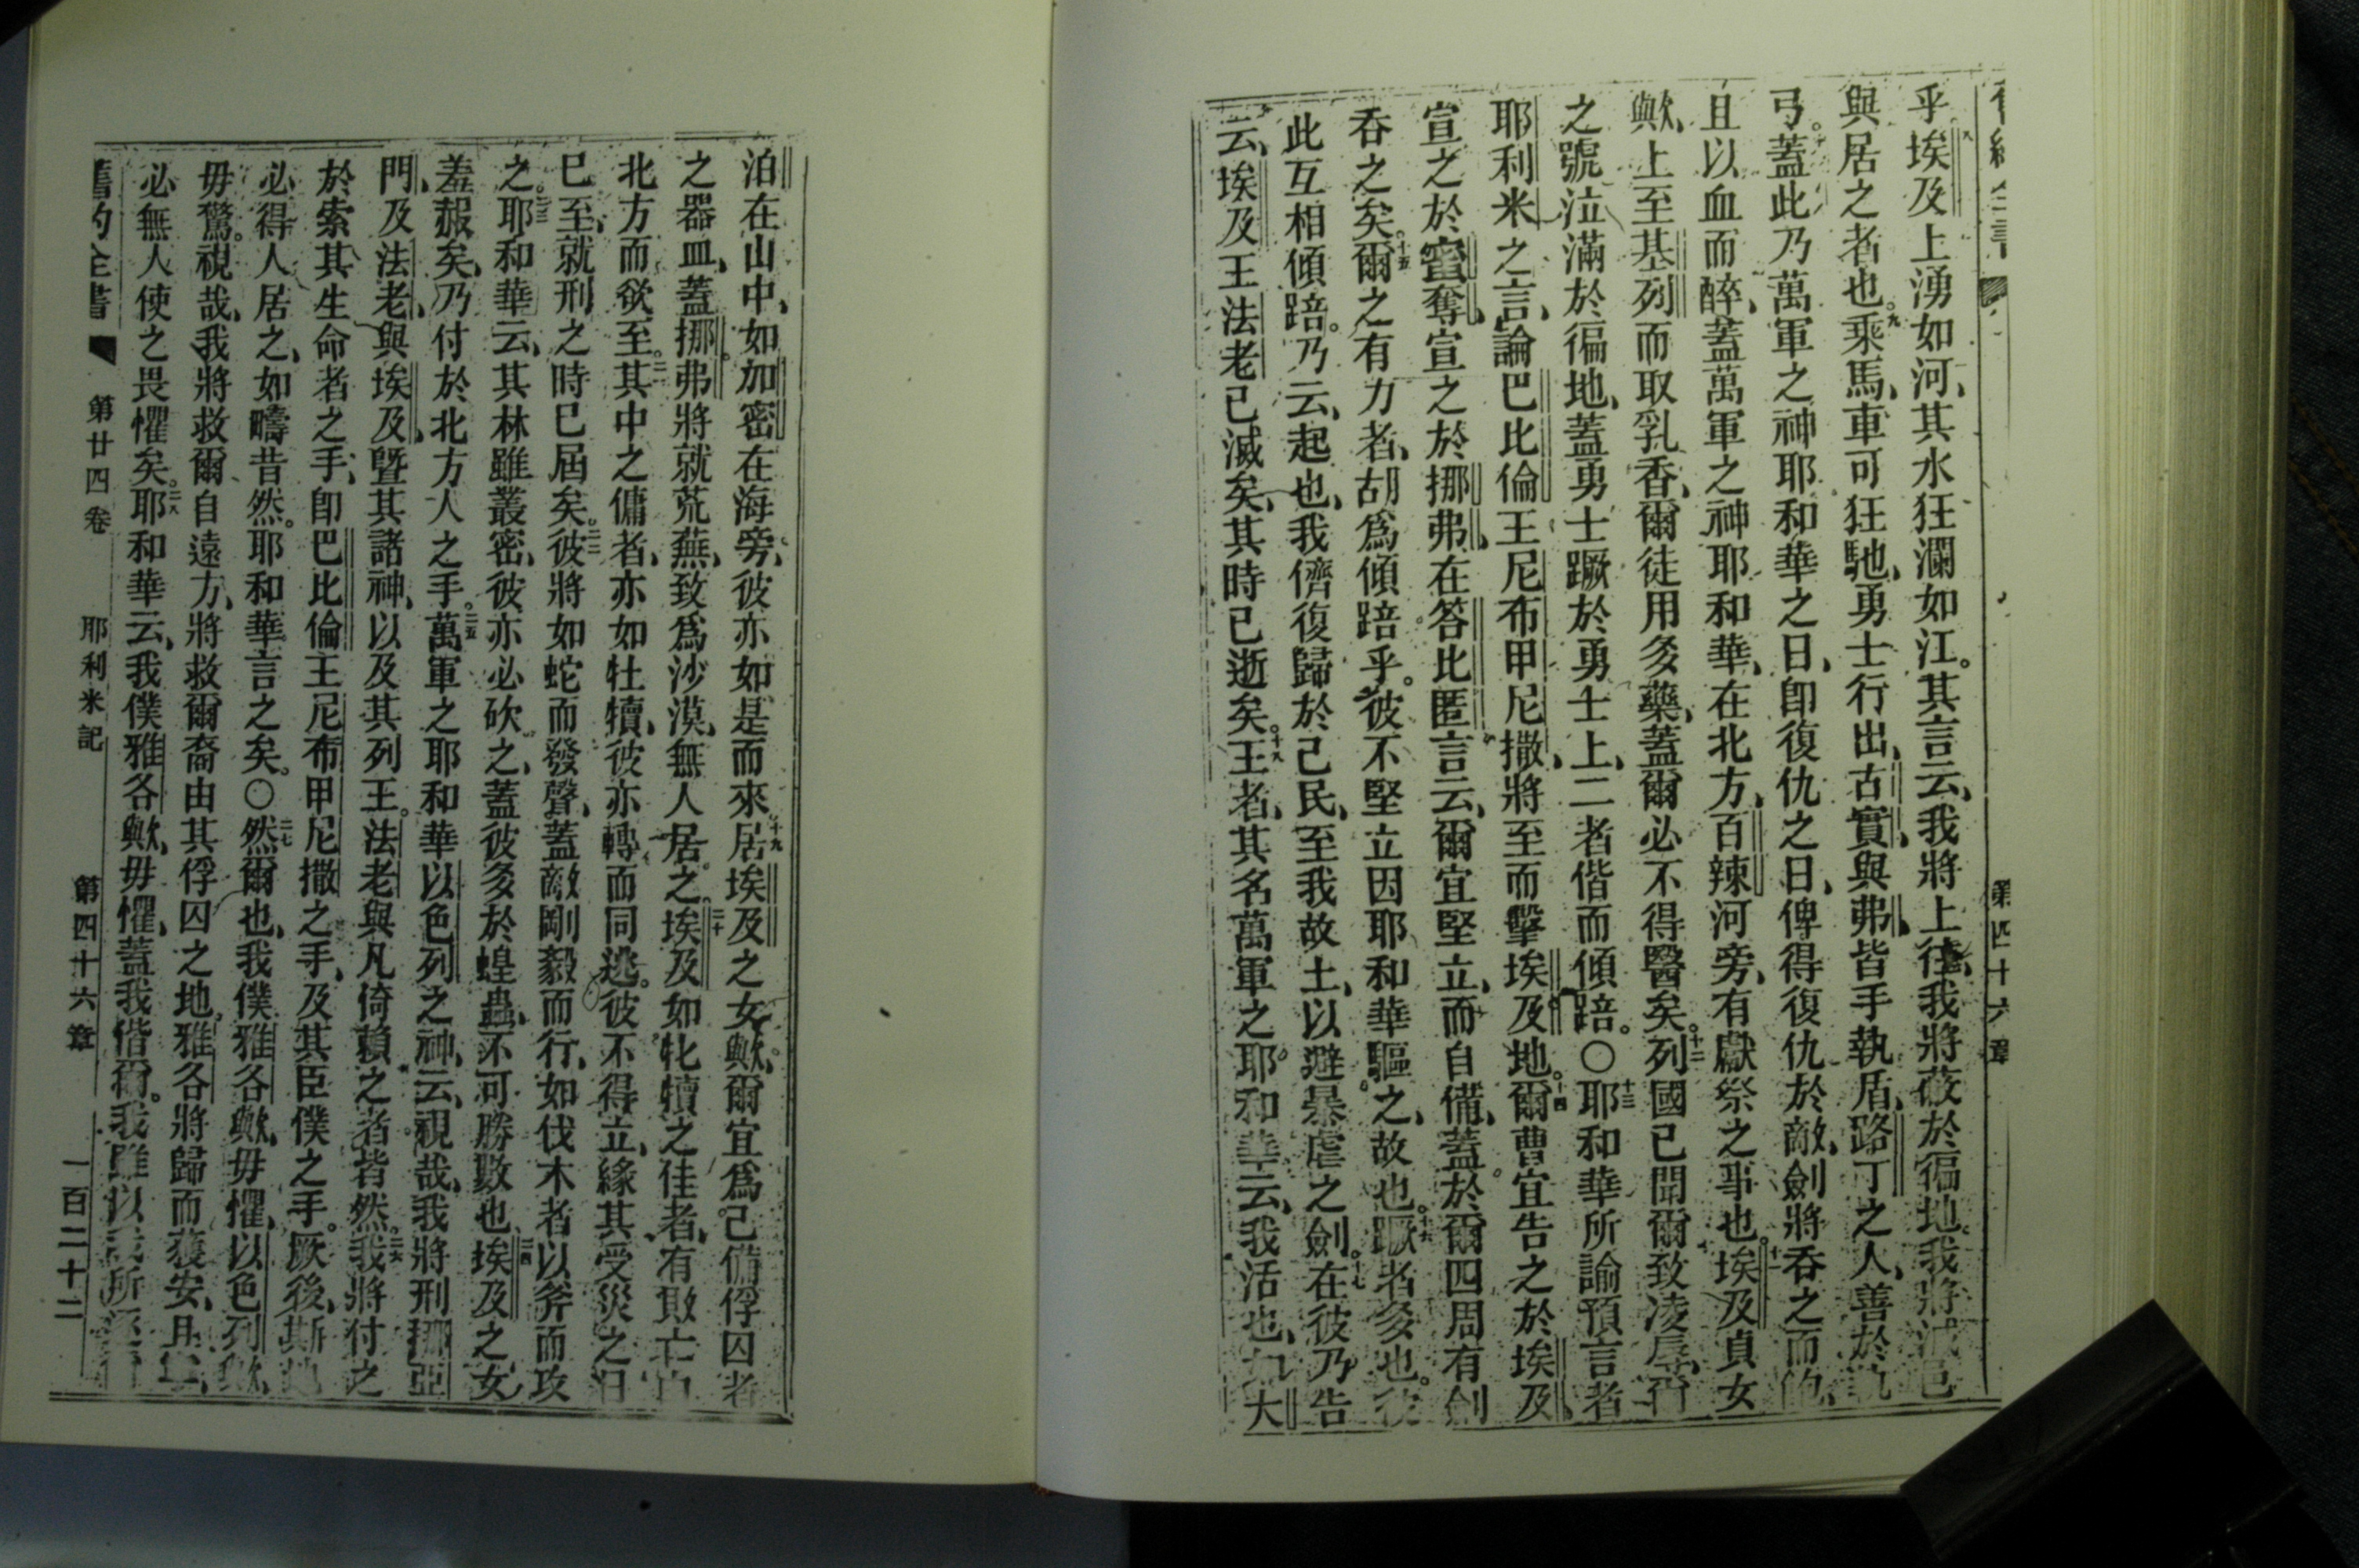 第四十六章
乎八埃及上湧如河、其水狂瀾如江。其言云、我將上往、我將蔽於徧地。我將滅邑
與居之者也。九乘馬、車可狂馳、勇士行出、古實、與弗、皆手執盾、路丁之人、善於執
弓。十蓋此乃萬軍之神耶和華之日、卽復仇之日、俾得復仇於敵、劍將吞之而飽、
且以血而醉、蓋萬軍之神耶和華、在北方、百辣河旁、有獻祭之事也。十一埃及貞女
歟、上至基列而取乳香、爾徒用多藥、蓋爾必不得醫矣。十二列國已聞爾致凌辱、爾
之號泣滿於徧地、蓋勇士蹶於勇士上、二者偕而傾踣。〇十三耶和華所諭預言者
耶利米之言、論巴比倫王尼布甲尼撒、將至而擊埃及地。十四爾曹宜告之於埃及、
宣之於蜜奪、宣之於挪弗、在答比匿言云、爾宜堅立、而自備、蓋於爾四周有劍
吞之矣。十五爾之有力者、胡爲傾踣乎。彼不堅立因耶和華驅之、故也。十六蹶者多也。彼
此互相傾踣。乃云、起也、我儕復歸於己民、至我故土、以避暴虐之劍。十七在彼乃告
云、埃及王法老已滅矣、其時已逝矣。十八王者、其名萬軍之耶和華云、我活也、大
泊在山中、如加密在海旁、彼亦如是而來。十九居埃及之女歟、爾宜爲己備俘囚者
之器皿、蓋挪弗將就荒蕪、致爲沙漠、無人居之。二十埃及如牝犢之佳者、有敗亡由
北方而欲至。二一其中之傭者、亦如牡犢、彼亦轉而同逃。彼不得立、緣其受災之日
已至、就刑之時已屆矣。二二彼將如蛇而發聲、蓋敵剛毅而行、如伐木者以斧而攻
之。二三耶和華云、其林雖叢密、彼亦必砍之、蓋彼多於蝗蟲、不可勝數也。二四埃及之女、
羞赧矣、乃付於北方人之手。二五萬軍之耶和華以色列之神、云、視哉、我將刑挪亞
門、及法老、與埃及、暨其諸神、以及其列王。法老與凡倚賴之者皆然。二六我將付之
於索其生命者之手、卽巴比倫王尼布甲尼撒之手、及其臣僕之手。厥後、斯地
必得人居之、如疇昔然。耶和華言之矣。〇二七然爾也、我僕雅各歟、毋懼、以色列歟、
毋驚。視哉、我將救爾自遠方、將救爾裔由其俘囚之地。雅各將歸而獲安、且
必無人使之畏懼矣。二八耶和華云、我僕雅各歟、毋懼、蓋我偕爾。我雖以我所
舊約全書 第廿四卷 耶利米記 第四十六章 一百二十二